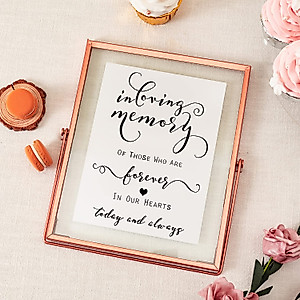 in loving
memory
Of Those Who Are
forever
In Our Hearts
today and always